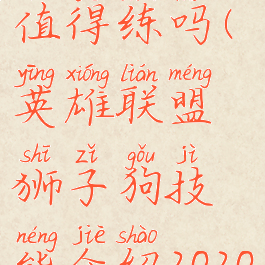 值得练吗(
yīng xióng lián méng
英雄联盟
shī zǐ gǒu jì
狮子狗技
néng jiè shào
能介绍2020